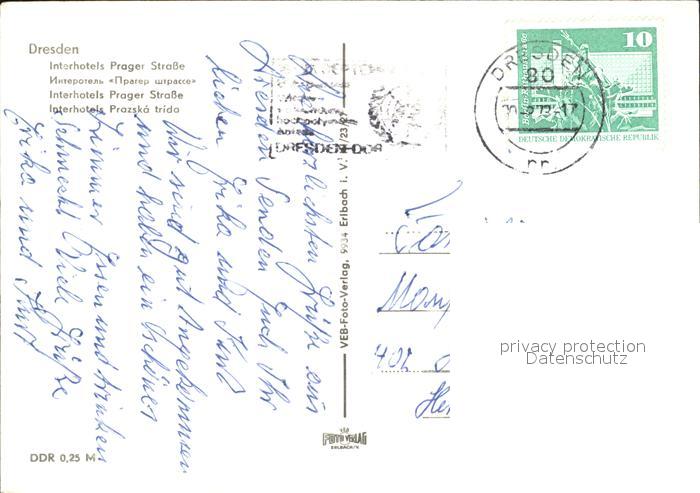 Dresden
Interhotels Prager Straße
Интеротель «Прагер штрассе»
Interhotels Prager Straße
Interhotels Prazská trída
Die herzlichsten Grüße aus
Dresden senden Euch Ihr
lieben Erika und Kurt
Wir sind gut angekommen
und haben ein schönes
Zimmer Essen und trinken
schmeckt Viele Grüße
Erika und Kurt
DDR 0,25 M
VEB-Foto-Verlag, 9934 Erlbach i. V.
FOTO VERLAG
ERLBACH/V.
DRESDEN DDR
DRESDEN
80
10
DEUTSCHE DEMOKRATISCHE REPUBLIK
402
privacy protection
Datenschutz